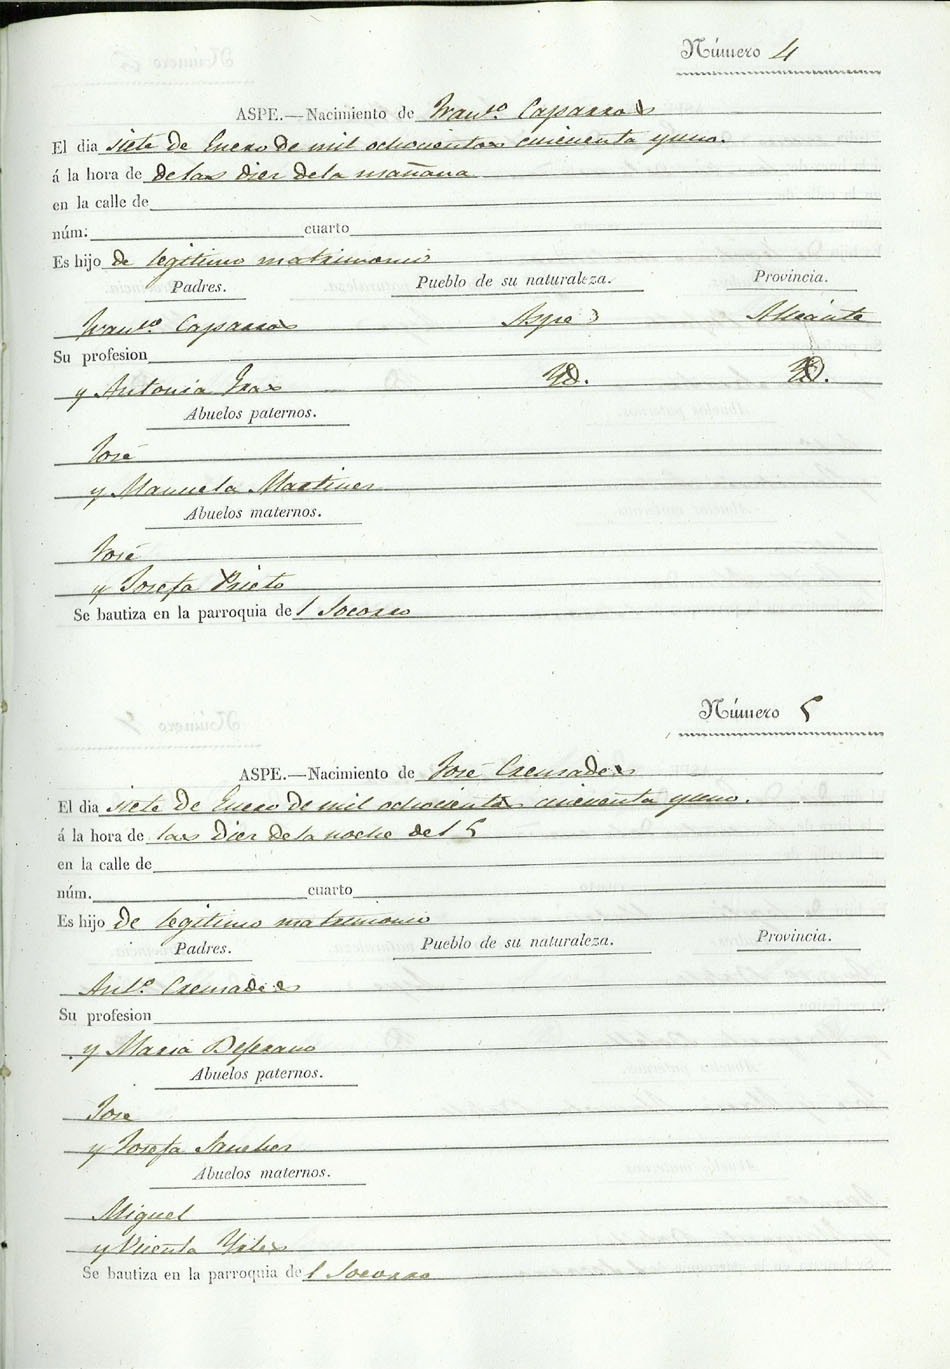 Número 4
ASPE.—Nacimiento de Franco. Caparros
El dia siete de Enero de mil ochocientos cincuenta y uno.
á la hora de de las diez de la mañana
en la calle de
núm: cuarto
Es hijo de legitimo matrimonio
Padres. Pueblo de su naturaleza. Provincia.
Franco. Caparros Aspe Alicante
Su profesion
y Antonia Yd. Yd.
Abuelos paternos.
José
y Manuela Martinez
Abuelos maternos.
José
y Josefa Prieto
Se bautiza en la parroquia del Socorro
Número 5
ASPE.—Nacimiento de José Cremades
El dia siete de Enero de mil ochocientos cincuenta y uno.
á la hora de las diez de la noche del 5
en la calle de
núm. cuarto
Es hijo de legitimo matrimonio
Padres. Pueblo de su naturaleza. Provincia.
Anto. Cremades
Su profesion
y Maria
Abuelos paternos.
José
y Josefa Sanchez
Abuelos maternos.
Miguel
y Vicenta
Se bautiza en la parroquia del Socorro